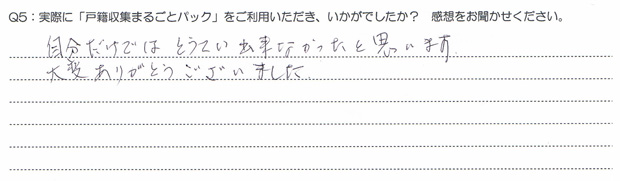 Q5：実際に「戸籍収集まるごとパック」をご利用いただき、いかがでしたか？ 感想をお聞かせください。
自分だけではとうてい出来なかったと思います
大変ありがとうございました